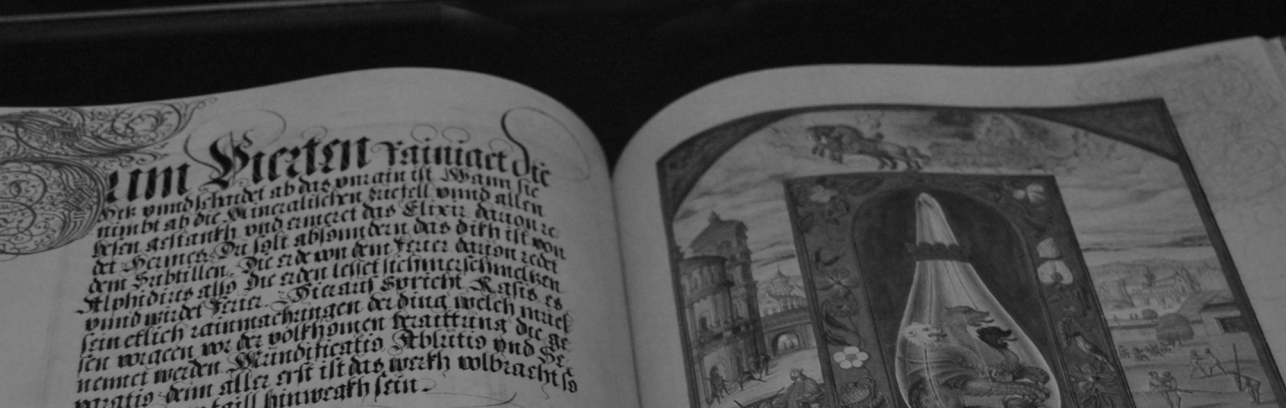 Zum Vierten rainiget die
Hitz vnnd schaidet ab das vnrain ist Wann sie
nimbt ab die Mineralischen vnd allen
gestankh vnd erneret das Elixir dauon re-
det Hermes Du solt absondern das dikh ist von
dem Subtillen Die erde von dem Feuer dauon redt
Alphidius also Die erden lesset sich
vnnd wirdet Feuer Hierauf Spricht Rasis es
sein etlich rainmachungen der ding welch
sen vor der volkhomen beraittung die ge
nennet werden Mundificatio Ablutio vnd Se
paratio denn aller erst ist das werkh volbracht so
hinwegkh sein